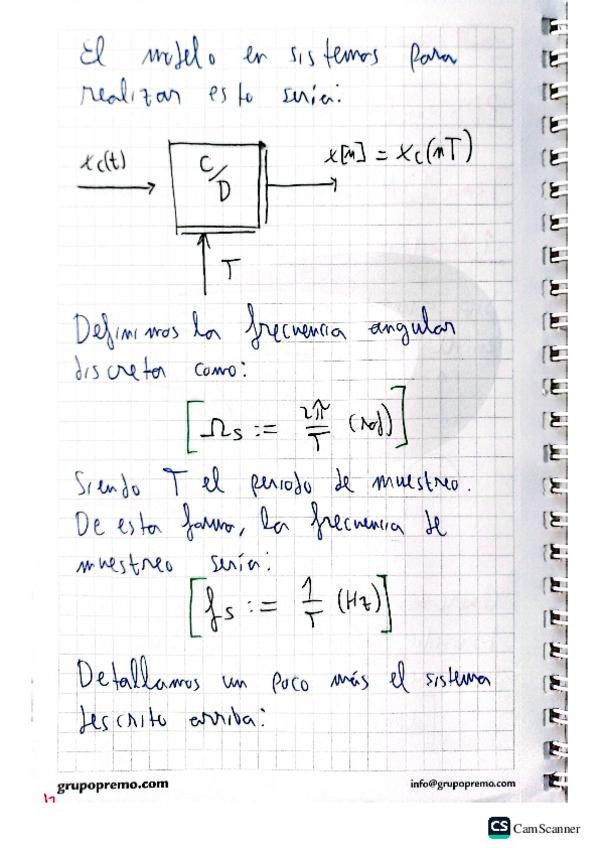 El modelo en sistemas para
realizar esto sería:
xc(t)
C/D
x[n] = xc(nT)
T
Definimos la frecuencia angular
discreta como:
[Ωs := 2π/T (rad)]
Siendo T el periodo de muestreo.
De esta forma, la frecuencia de
muestreo sería:
[fs := 1/T (Hz)]
Detallamos un poco más el sistema
descrito arriba:
grupopremo.com
info@grupopremo.com
CS CamScanner